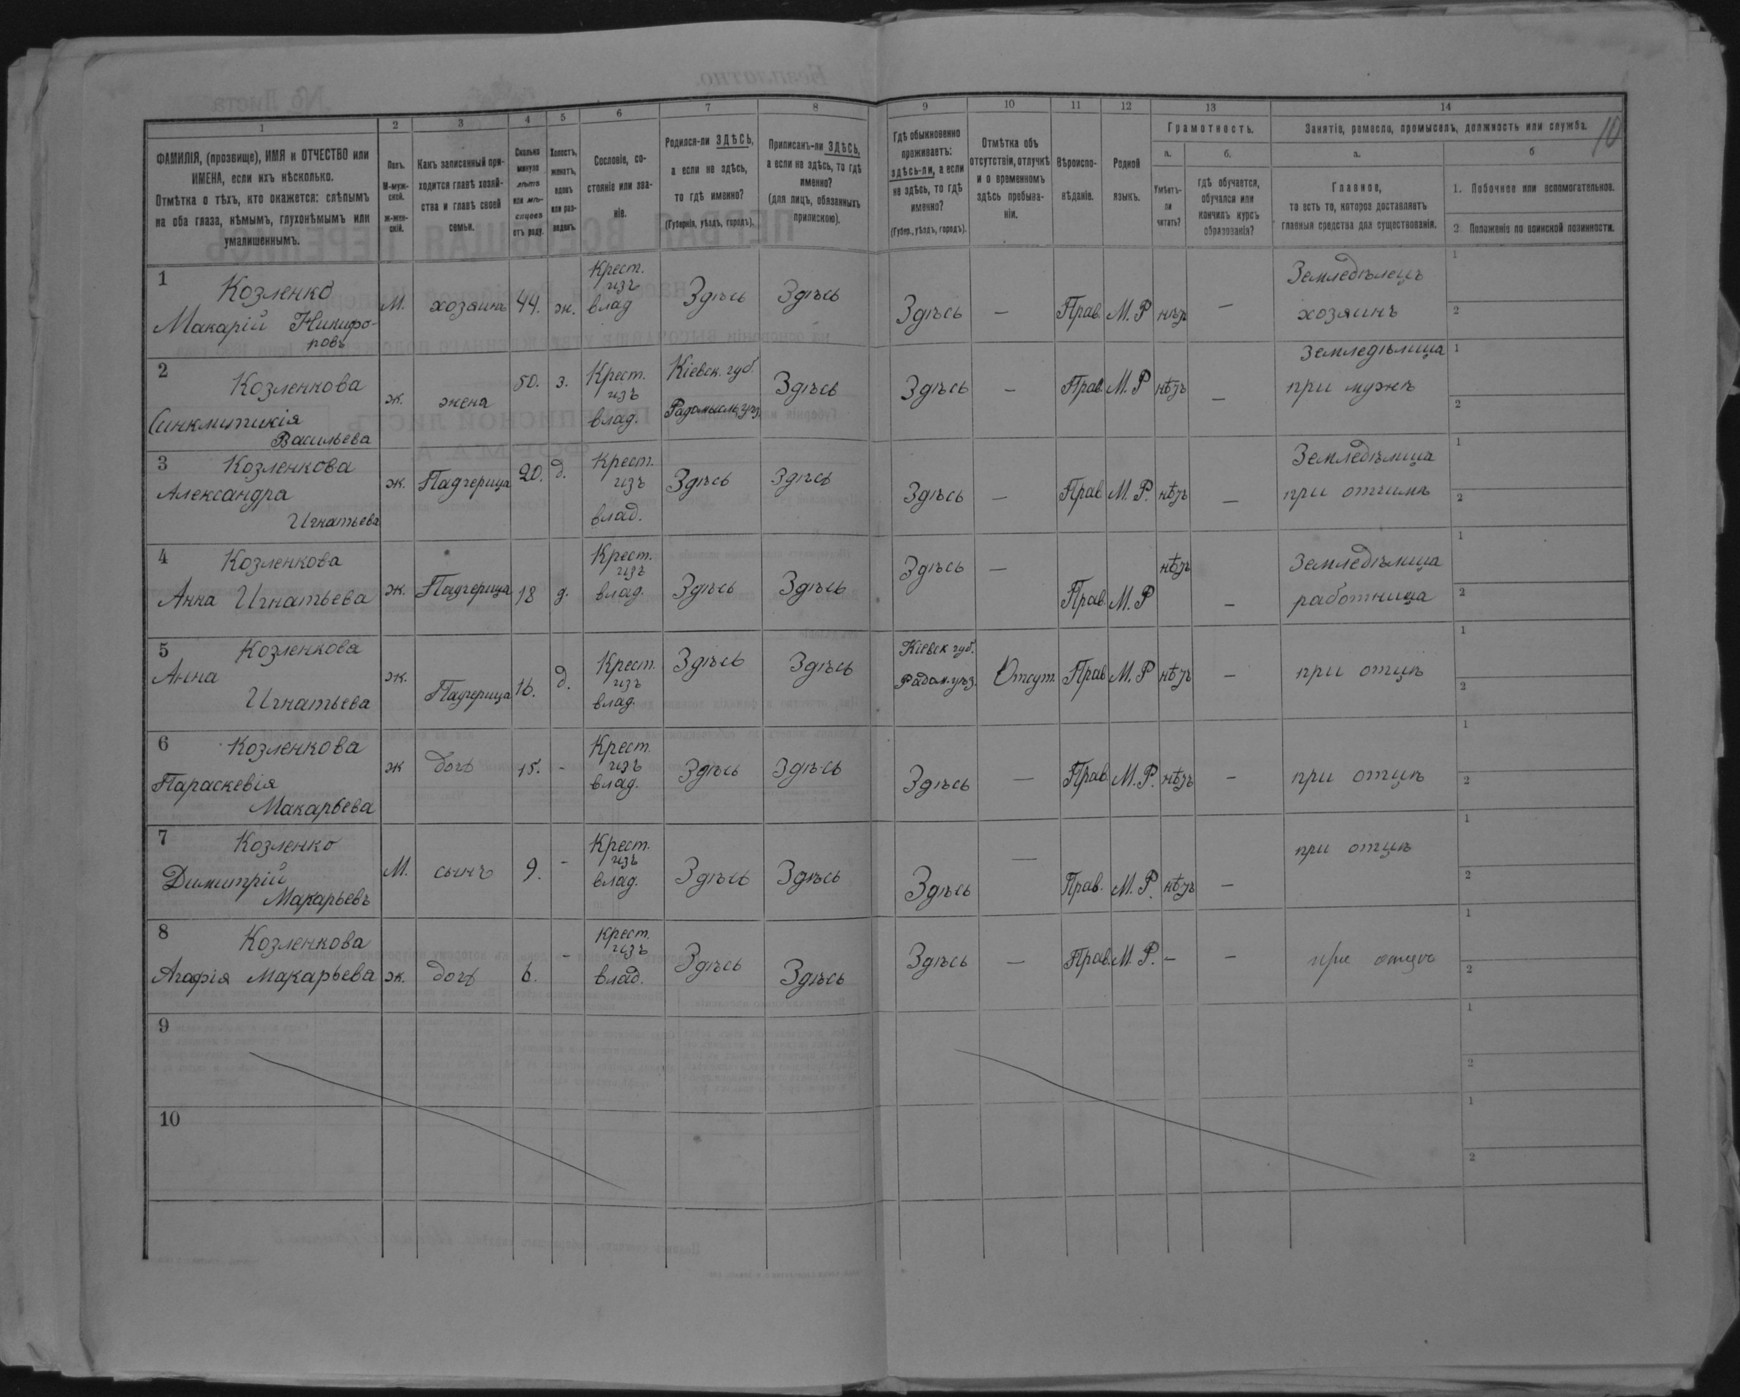 1 2 3 4 5 6 7 8 9 10 11 12 13 14
ФАМИЛІЯ, (прозвище), ИМЯ и ОТЧЕСТВО или
ИМЕНА, если ихъ нѣсколько.
Отмѣтка о тѣхъ, кто окажется: слѣпымъ
на оба глаза, нѣмымъ, глухонѣмымъ или
умалишеннымъ.
Полъ.
М-муж-
ской.
Ж-жен-
скій.
Какъ записанный при-
ходится главѣ хозяй-
ства и главѣ своей
семьи.
Сколько
минуло
лѣтъ
или мѣ-
сяцевъ
отъ роду.
Холостъ,
женатъ,
вдовъ
или раз-
веденъ.
Сословіе, со-
стояніе или зва-
ніе.
Родился-ли ЗДѢСЬ,
а если не здѣсь,
то гдѣ именно?
(Губернія, уѣздъ, городъ).
Приписанъ-ли ЗДѢСЬ,
а если не здѣсь, то гдѣ
именно?
(для лицъ, обязанныхъ
припискою).
Гдѣ обыкновенно
проживаетъ:
здѣсь-ли, а если
не здѣсь, то гдѣ
именно?
(Губер., уѣздъ, городъ).
Отмѣтка объ
отсутствіи, отлучкѣ
и о временномъ
здѣсь пребыва-
ніи.
Вѣроиспо-
вѣданіе.
Родной
языкъ.
Грамотность.
а.
Умѣетъ-
ли
читать?
б.
гдѣ обучается,
обучался или
кончилъ курсъ
образованія?
Занятіе, ремесло, промыселъ, должность или служба.
10
а.
Главное,
то есть то, которое доставляетъ
главныя средства для существованія.
б
1. Побочное или вспомогательное.
2. Положеніе по воинской повинности.
1 Козленко
Макарій Никифо-
ровъ
М. хозяинъ 44. ж.
Крест.
изъ
влад
Здѣсь Здѣсь Здѣсь — Прав. М. Р нѣтъ —
Земледѣлецъ
хозяинъ
1
2
2 Козленкова
Синклитикія
Васильева
ж. жена 50. з.
Крест.
изъ
влад.
Кіевск. губ.
Радомысл. уѣз.
Здѣсь Здѣсь — Прав. М. Р нѣтъ —
Земледѣлица
при мужѣ
1
2
3 Козленкова
Александра
Игнатьева
ж. Падчерица 20. д.
Крест.
изъ
влад.
Здѣсь Здѣсь Здѣсь — Прав. М. Р. нѣтъ —
Земледѣлица
при отчимѣ
1
2
4 Козленкова
Анна Игнатьева
ж. Падчерица 18 д.
Крест.
изъ
влад.
Здѣсь Здѣсь Здѣсь — Прав. М. Р нѣтъ —
Земледѣлица
работница
1
2
5 Козленкова
Анна
Игнатьева
ж. Падчерица 16. д.
Крест.
изъ
влад.
Здѣсь Здѣсь
Кіевск губ.
Радом. уѣз.
Отсут. Прав. М. Р нѣтъ — при отцѣ
1
2
6 Козленкова
Параскевія
Макарьева
ж дочь 15. -
Крест.
изъ
влад.
Здѣсь Здѣсь Здѣсь — Прав. М. Р. нѣтъ — при отцѣ
1
2
7 Козленко
Димитрій
Макарьевъ
М. сынъ 9. -
Крест.
изъ
влад.
Здѣсь Здѣсь Здѣсь — Прав. М. Р. нѣтъ — при отцѣ
1
2
8 Козленкова
Агафія Макарьева
ж. дочь 6. -
Крест.
изъ
влад.
Здѣсь Здѣсь Здѣсь — Прав. М. Р. — — при отцѣ
1
2
9
1
2
10
1
2